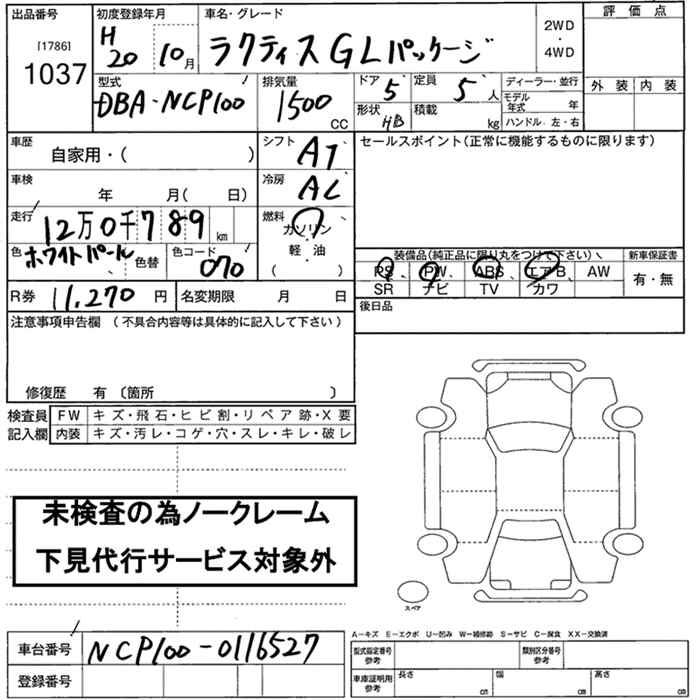 出品番号 初度登録年月 車名・グレード 評価点
[1786] 1037 H20 10月 ラクティス GLパッケージ 2WD・4WD
外装 内装
型式 排気量 ドア 5 定員 5人 ディーラー・並行
DBA-NCP100 1500 CC 形状 HB 積載 kg モデル年式 年
ハンドル 左・右
車歴 自家用・( ) シフト AT セールスポイント(正常に機能するものに限ります)
車検 年 月( 日) 冷房 AC
走行 12万0千789km 燃料 ガソリン
色 ホワイトパール 色替 色コード 070 軽・油 ( )
装備品(純正品に限り丸をつけて下さい) 新車保証書
PS PW ABS エアB AW 有・無
SR ナビ TV カワ
R券 11,270円 名変期限 月 日 後日品
注意事項申告欄(不具合内容等は具体的に記入して下さい)
修復歴 有〔箇所 〕
検査員 FW キズ・飛石・ヒビ割・リペア跡・X要
記入欄 内装 キズ・汚レ・コゲ・穴・スレ・キレ・破レ
未検査の為ノークレーム
下見代行サービス対象外
スペア
A-キズ E-エクボ U-凹み W-補修跡 S-サビ C-腐食 XX-交換済
車台番号 NCP100-0116527 型式指定番号 参考 類別区分番号 参考
登録番号 車庫証明用 参考 長さ cm 幅 cm 高さ cm